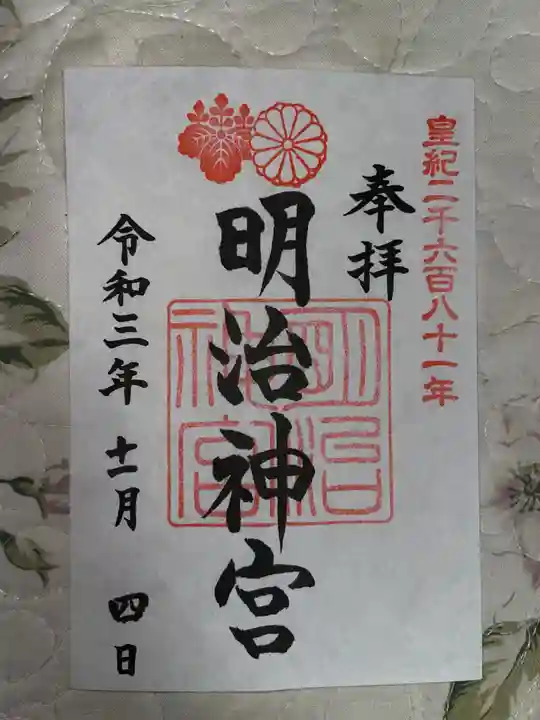 皇紀二千六百八十一年
奉拝
明治神宮
明治神宮
令和三年 十一月 四日